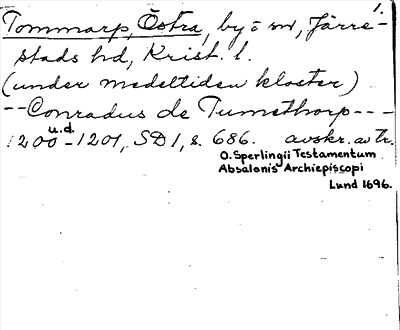 1.
Tommarp, Östra, by o sn, Järre-
stads hd, Krist. l.
(under medeltiden kloster)
-- Conradus de Tumethorp ---
u.d.
1200-1201, SD 1, s. 686. avskr. av tr.
O. Sperlingii Testamentum
Absalonis Archiepiscopi
Lund 1696.